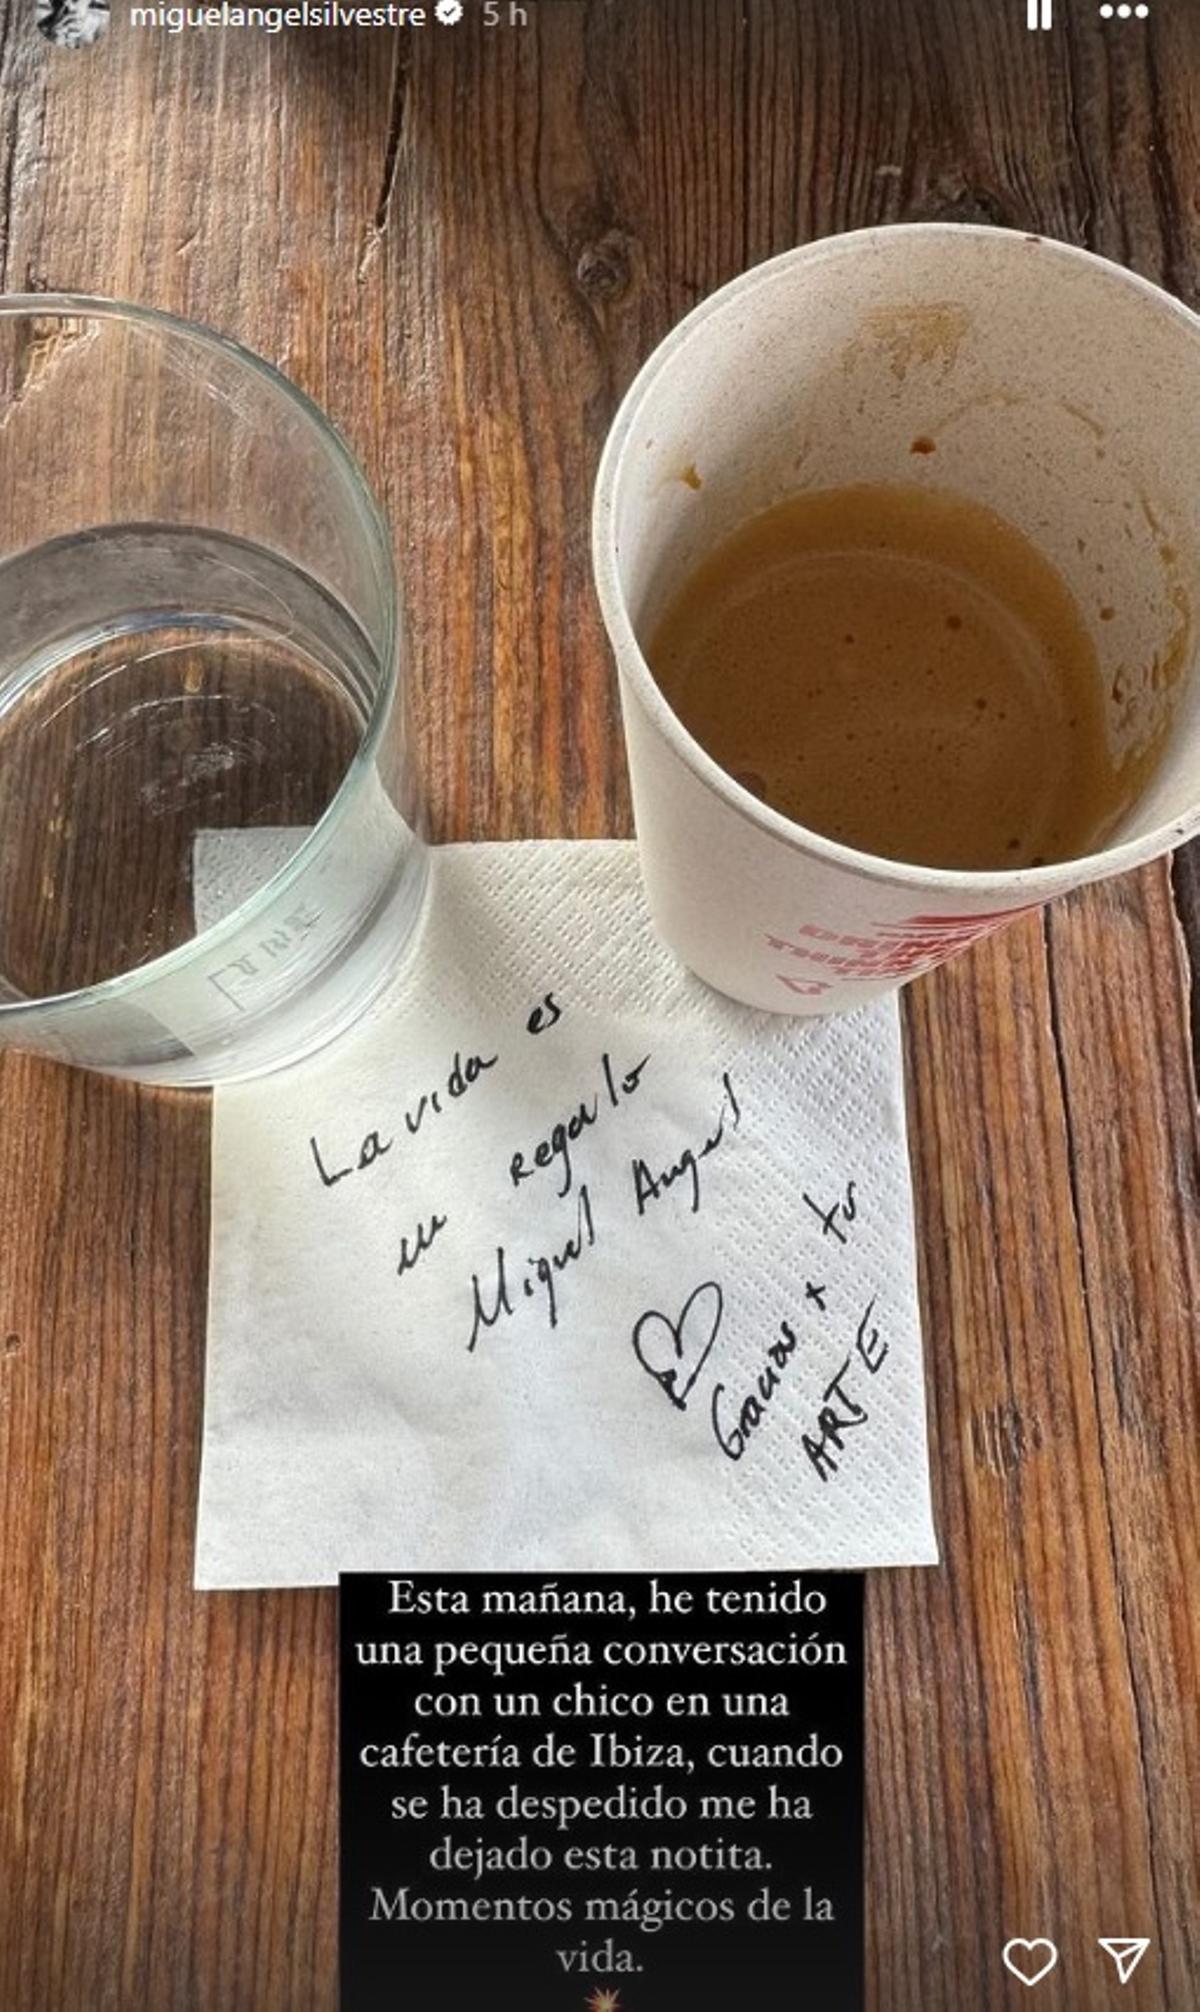 miguelangelsilvestre 5 h
La vida es
un regalo
Miguel Angel
Gracias x tu
ARTE
Esta mañana, he tenido
una pequeña conversación
con un chico en una
cafetería de Ibiza, cuando
se ha despedido me ha
dejado esta notita.
Momentos mágicos de la
vida.